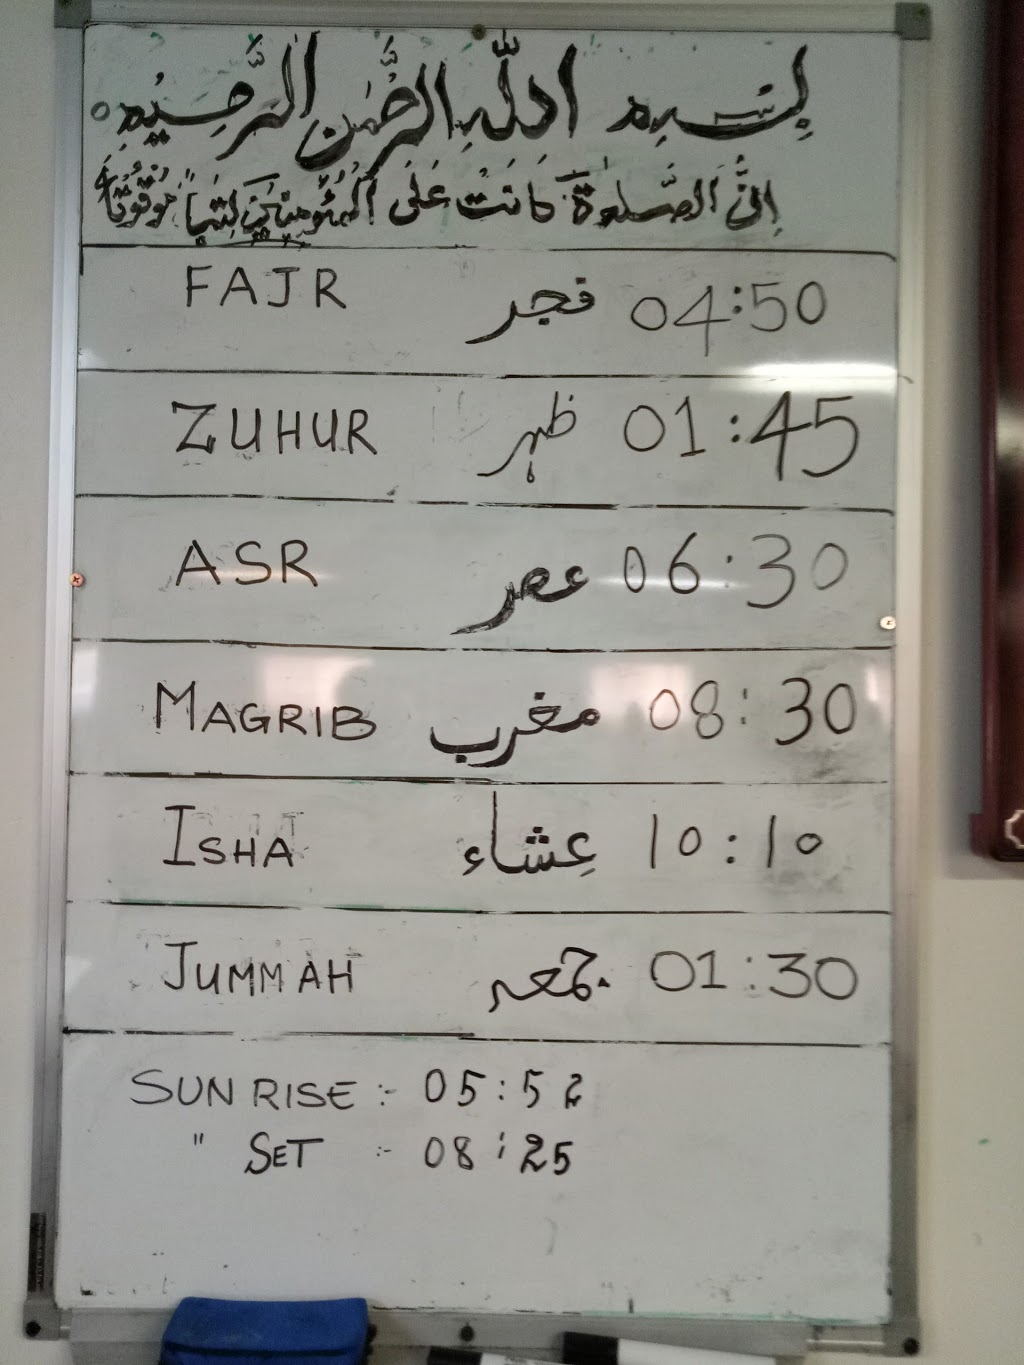 بِسْمِ اللّٰهِ الرَّحْمٰنِ الرَّحِيْمِ ○
اِنَّ الصَّلٰوةَ كَانَتْ عَلَى الْمُؤْمِنِيْنَ كِتٰبًا مَّوْقُوْتًا
FAJR فجر 04:50
ZUHUR ظہر 01:45
ASR عصر 06:30
MAGRIB مغرب 08:30
ISHA عِشاء 10:10
JUMMAH جمعہ 01:30
SUN RISE :- 05:52
" SET :- 08:25